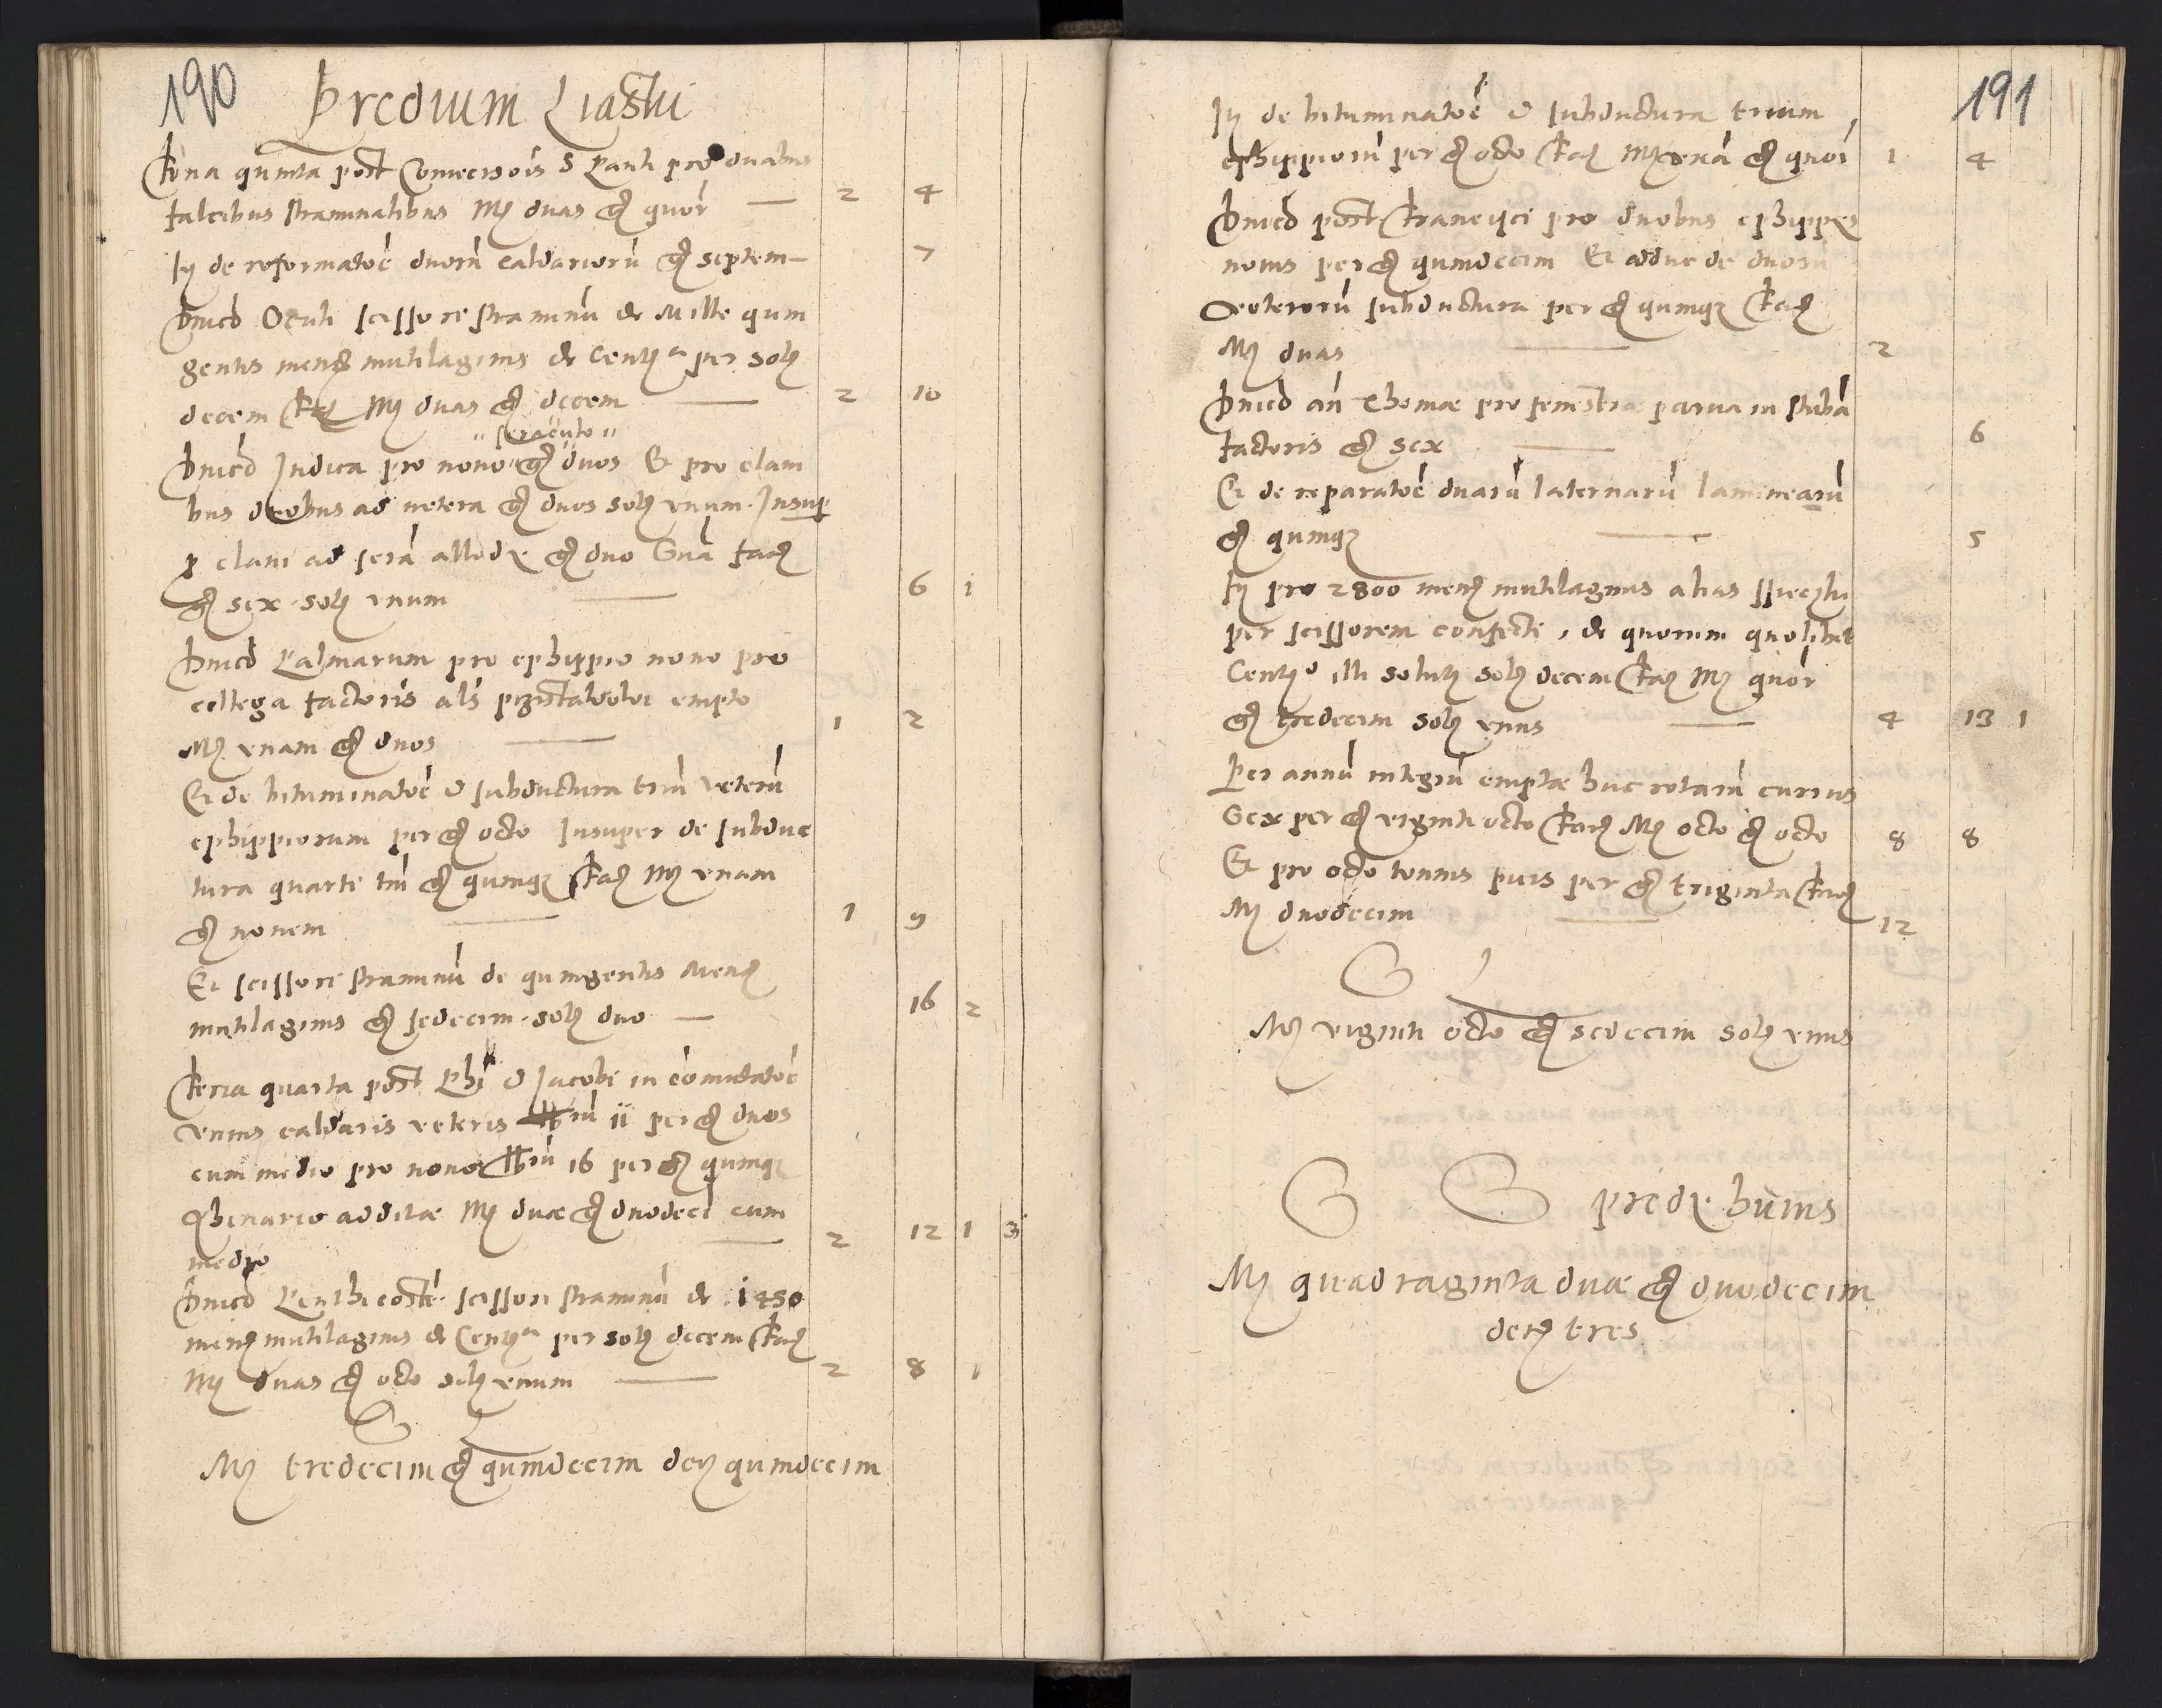 190
Predium Liaski
Feria quinta post Conversiois S Pauli pro duabus
falcibus straminalibus Mr duas gr quor — 2 4
It de reformatoe duoru caldarioru gr septem — 7
Dnico Oculi scissori straminu de Mille quin
gentis mens mutilaginis de Cent per sol
decem fac Mr duas gr decem — 2 10
" seraculo "
Dnico Judica pro novo gr duos Et pro clavi
bus duobus ad vetera gr duos sol unum. Insup
p clavi ad sera allodÿ gr duo Sua facit
gr sex sol unum — 6 1
Dnico Palmarum pro ephippio novo pro
collega factoris als empto
Mr unam gr duos — 1 2
Et de bituminatoe & subductura triu veteru
ephippiorum per gr octo Insuper de subduc
tura quarti tm gr quinq fac Mr unam
gr novem — 1 9
Et scissori straminu de quingentis mens
mutilaginis gr sedecim sol duo — 16 2
Feria quarta post Phi & Jacobi in comutatoe
unius caldaris veteris ru ii per gr duos
cum medio pro novo ru 16 per gr quinq
&binario additae Mr duae gr duodeci cum
medio — 2 12 1 3
Dnico Penthecoste scissori straminu de 1450
mens mutilaginis de Cent per sol decem fac
Mr duas gr octo sol unum — 2 8 1
S
Mr tredecim gr quindecim den quindecim
191
It de bituminatoe & subductura trium
ephippioru per gr octo fac Mr una gr quor 1 4
Dnico post Francisci pro duobus ephippÿs
novis per gr quindecim Et adhuc de duoru
veteroru subductura per gr quinq fac
Mr duas — 2
Dnico an Thomae pro fenestra parva in stuba
factoris gr sex — 6
Et de reparatoe duaru laternaru laminearu
gr quinq — 5
It pro 2800 mens mutilaginis alias
per scissorem confecti, de quorum quolibet
Cent illi solut sol decem fac Mr quor
gr tredecim sol unus — 4 13 1
Per annu integru emptae huc rotaru currus
Sex per gr viginti octo fac Mr octo gr octo 8 8
Et pro octo tonnis picis per gr triginta fac
Mr duodecim — 12
S
Mr viginti octo gr sedecim sol unus
S S predÿ huius
Mr quadraginta duae gr duodecim
den tres